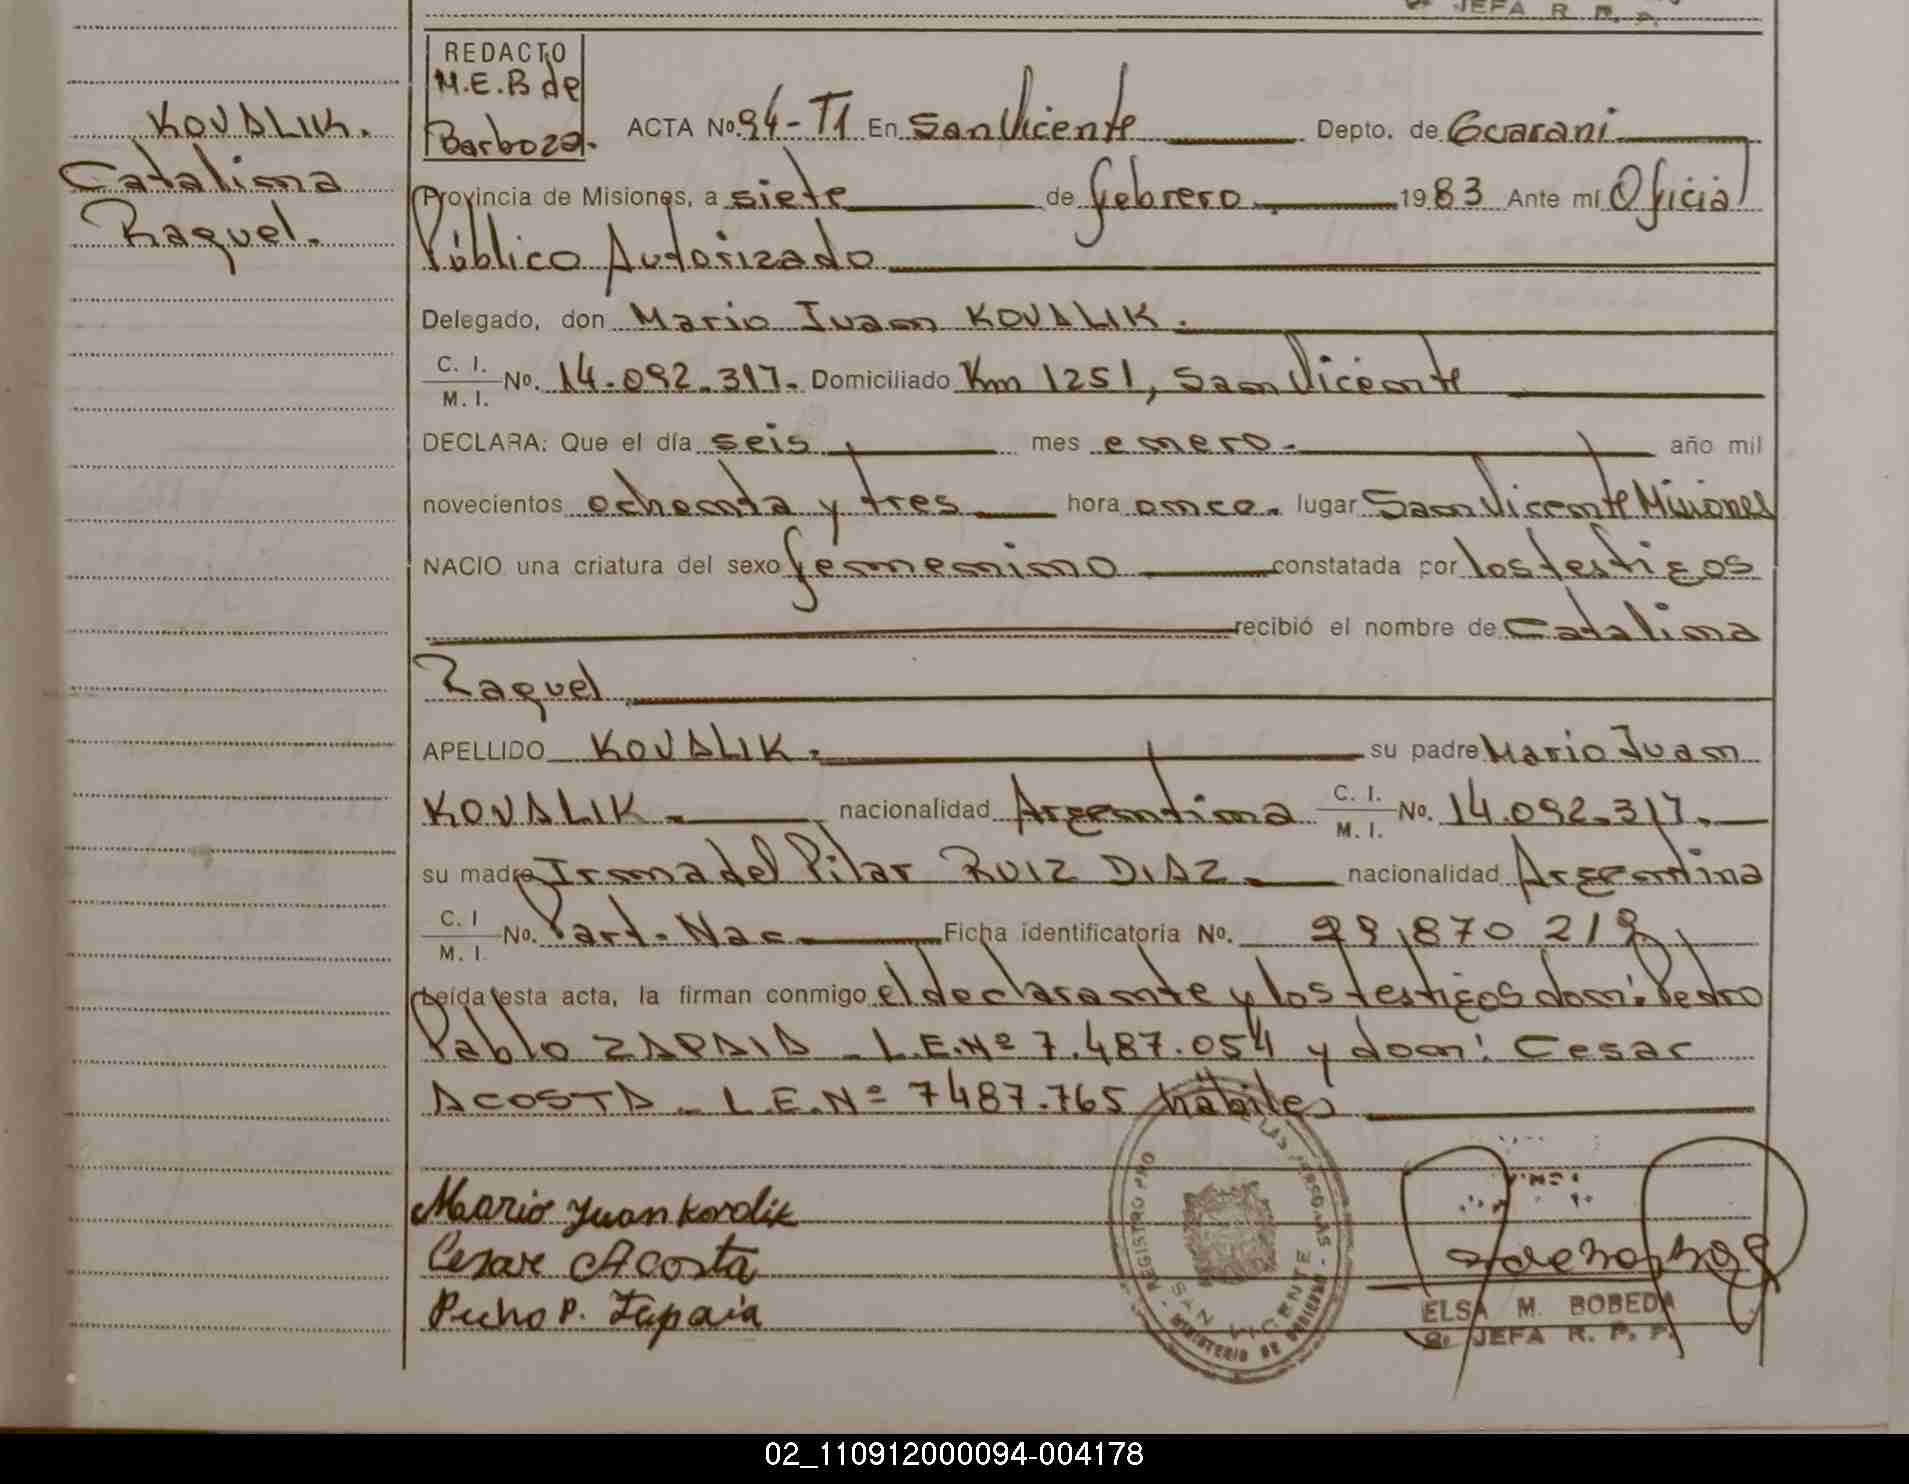 JEFA R. P. P.
REDACTO
M.E.B de
Barboza.
KOVALIK.
Catalina
Raquel.
ACTA No. 94-T1 En San Vicente Depto. de Guarani
Provincia de Misiones, a siete de febrero. 1983 Ante mí Oficial
Público Autorizado
Delegado, don Mario Juan KOVALIK.
C. I.
M. I. No. 14.092.317. Domiciliado Km 1251, San Vicente
DECLARA: Que el día seis mes enero. año mil
novecientos ochenta y tres hora once. lugar San Vicente Misiones
NACIO una criatura del sexo femenino constatada por los testigos
recibió el nombre de Catalina
Raquel
APELLIDO KOVALIK. su padre Mario Juan
KOVALIK. nacionalidad Argentina C. I.
M. I. No. 14.092.317.
su madre Irma del Pilar RUIZ DIAZ. nacionalidad Argentina
C. I
M. I. No. Part. Nac. Ficha identificatoria No. 29.870.219
Leída esta acta, la firman conmigo el declarante y los testigos don: Pedro
Pablo ZAPAIA - L.E.Nº 7.487.054 y don: Cesar
ACOSTA - L.E.Nº 7487.765 hábiles
Mario Juan Kovalik
Cesar Acosta
Pedro P. Zapaia
REGISTRO PRO LAS PERSONAS
SAN VICENTE
MINISTERIO DE GOBIERNO
ELSA M. BOBEDA
JEFA R. P. P.
02_110912000094-004178